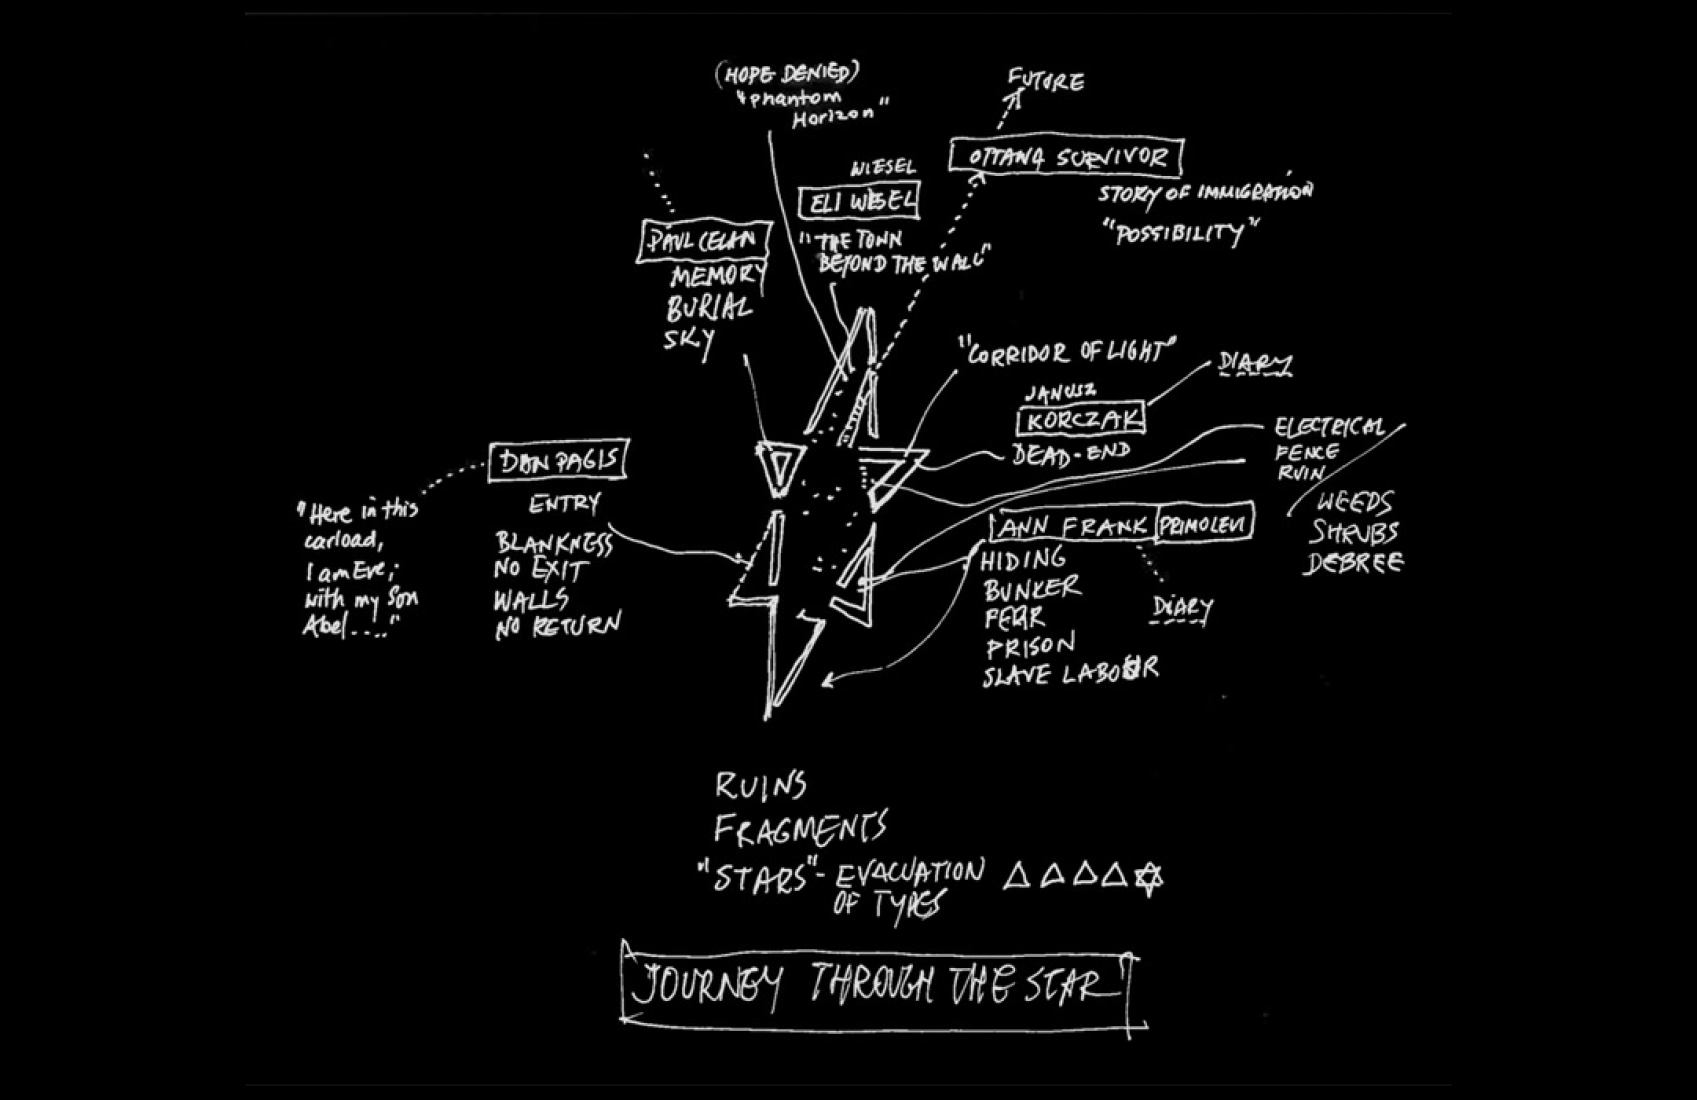 (HOPE DENIED)
"phantom
Horizon"
FUTURE
OTTAWA SURVIVOR
STORY OF IMMIGRATION
"POSSIBILITY"
WIESEL
ELI WIESEL
"THE TOWN
BEYOND THE WALL"
PAUL CELAN
MEMORY
BURIAL
SKY
"CORRIDOR OF LIGHT"
DIARY
JANUSZ
KORCZAK
DEAD-END
ELECTRICAL
FENCE
RUIN
WEEDS
SHRUBS
DEBREE
DAN PAGIS
ENTRY
BLANKNESS
NO EXIT
WALLS
NO RETURN
"Here in this
carload,
I am Eve,
with my Son
Abel...."
ANN FRANK PRIMO LEVI
HIDING
BUNKER
FEAR
PRISON
SLAVE LABOUR
DIARY
RUINS
FRAGMENTS
"STARS" - EVACUATION
OF TYPES
JOURNEY THROUGH THE STAR